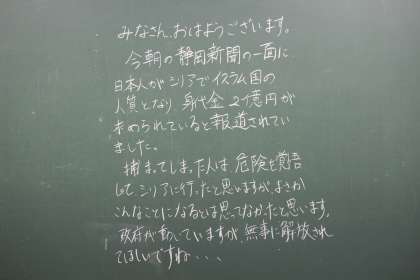 みなさん、おはようございます。
今朝の静岡新聞の一面に
日本人がシリアでイスラム国の
人質となり、身代金2億円が
求められていると報道されてい
ました。
捕まってしまった人は危険を覚悟
してシリアに行ったと思いますが、まさか
こんなことになるとは思ってなかったと思います。
政府が動いていますが、無事に解放され
てほしいですね・・・